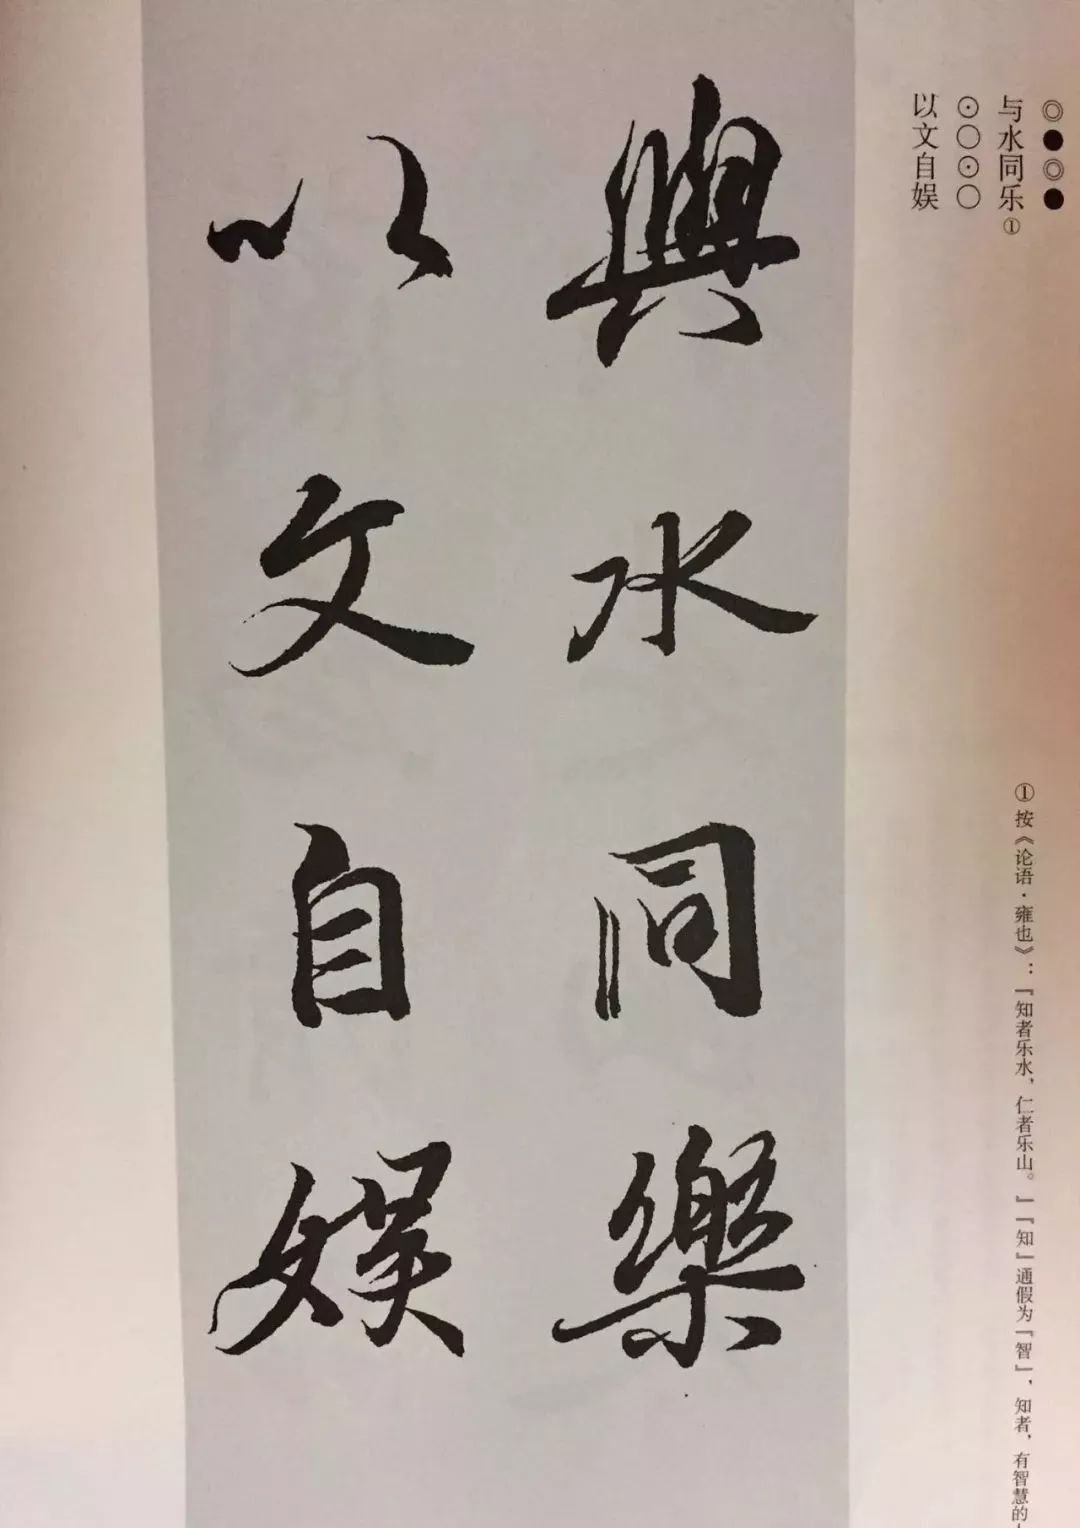 ◎●◎●
与水同乐①
⊙○⊙○
以文自娱
與水同樂
以文自娱
①按《论语·雍也》：『知者乐水，仁者乐山。』『知』通假为『智』，知者，有智慧的